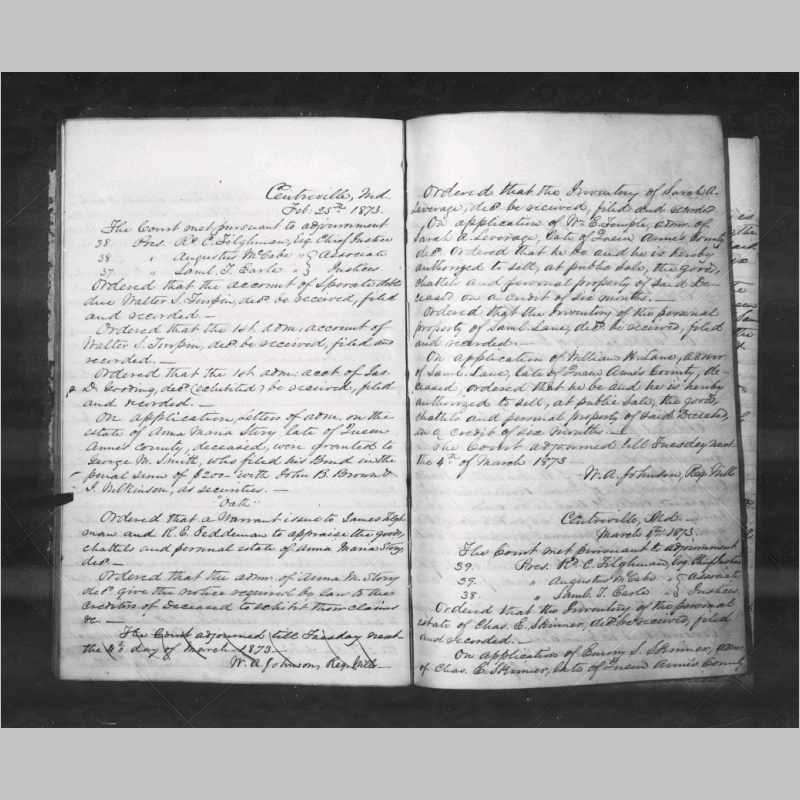 Centreville, Md.
Feb. 25th 1873.
The Court met pursuant to adjournment
38. Pres. Rd C. Tilghman, Esq Chief Justice
38. " Augustus McCabe " } Associate
37. " Saml. T. Earle " } Justices
Ordered that the account of Sperate debts
due Walter S. Turpin, decd be received, filed
and recorded. —
Ordered that the 1st adm. account of
Walter S. Turpin, decd be received, filed and
recorded. —
Ordered that the 1st adm. acct of Jas.
D. Gooding, decd (exhibited) be received, filed
and recorded. —
On application, letters of adm. on the
estate of Anna Maria Story late of Queen
Anne's County, deceased, were granted to
George M. Smith, who filed his Bond in the
penal Sum of $200 with John B. Brown &
J. Wilkinson, as securities. —
"Oath"
Ordered that a Warrant issue to James Tilgh
man and R. E. Feddeman to appraise the goods,
chattels and personal estate of Anna Maria Story,
decd —
Ordered that the admr. of Anna M. Story
decd give the notice required by law to the
creditors of deceased to exhibit their claims
&c —
The Court adjourned till Tuesday next
the 4th day of March 1873. —
W. A. Johnson, Reg. Wills
Ordered that the Inventory of Sarah A.
Leverage, decd be received, filed and recorded.
On application of Wm E. Temple, admr. of
Sarah A. Leverage, late of Queen Anne's County
decd Ordered that he be and he is hereby
authorized to sell, at public sale, the goods,
chattels and personal property of said De-
ceased on a credit of six months. —
Ordered that the Inventory of the personal
property of Saml. Lane, decd be received, filed
and recorded. —
On application of William H. Lane, admr.
of Saml. Lane, late of Queen Anne's County, de-
ceased ordered that he be and he is hereby
authorized to sell, at public sale, the goods,
chattels and personal property of said Deceased,
on a credit of six months. —
The Court adjourned till Tuesday next
the 4th of March 1873
W. A. Johnson, Reg. Wills
Centreville, Md.
March 4th 1873.
The Court met pursuant to adjournment
39. Pres. Rd C. Tilghman, Esq Chief Justice
39. " Augustus McCabe " } Associate
38. " Saml. T. Earle " } Justices
Ordered that the Inventory of the personal
estate of Chas. E. Skinner, decd be received, filed
and recorded. —
On application of Emory S. Skinner, admr.
of Chas. E. Skinner, late of Queen Anne's County